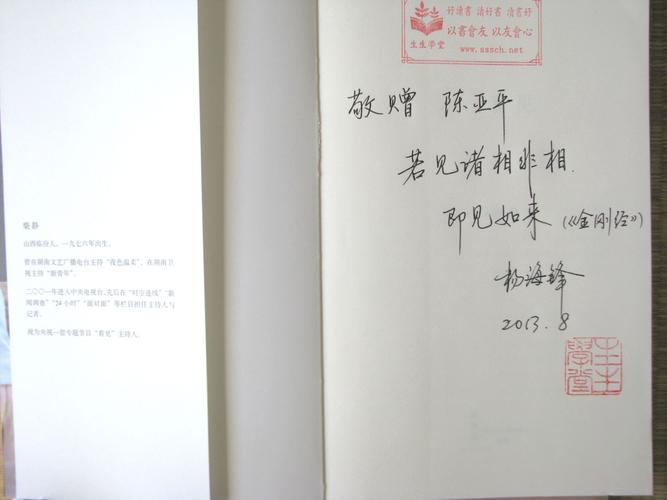 柴静
山西临汾人，一九七六年出生。
曾在湖南文艺广播电台主持“夜色温柔”，在湖南卫
视主持“新青年”。
二〇〇一年进入中央电视台，先后在“时空连线”“新
闻调查”“24小时”“面对面”等栏目担任主持人与
记者。
现为央视一套专题节目“看见”主持人。
生生学堂
好讀書 讀好書 讀書好
以書會友 以友會心
www.sssch.net
敬赠 陈亚平
若见诸相非相
即见如来（《金刚经》）
杨海锋
2013.8
生生
學堂